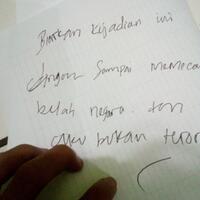 Biarkan kejadian ini
Jangan sampai memecah
belah negara. dan
aku bukan teror